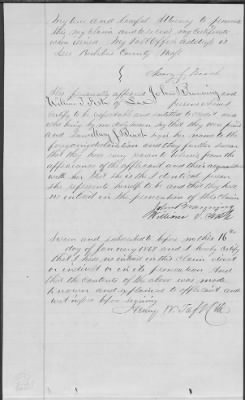 my true and lawful Attorney to prosecute
this my claim and to receive my certificate
when issued. My Post Office address is
Lee Berkshire County Mass
Mary J. Beach
Also personally appeared John Branning and
William T. Fish of Lee persons whom I
certify to be respectable and entitled to credit and
who being by me duly sworn say that they were present
and saw Mary J. Beach sign her name to the
foregoing declaration and they further swear
that they have every reason to believe from the
appearance of the applicant and their acquaintance
with her that she is the identical person
she represents herself to be and that they have
no interest in the prosecution of this claim
John Branning
William T. Fish
Sworn and subscribed to before me this 16th
day of January 1865 and I hereby certify
that I have no interest in this claim direct
or indirect or in its prosecution. And
that the contents of the above was made
known and explained to applicant and
witnesses before signing
Henry W. Taft Clk